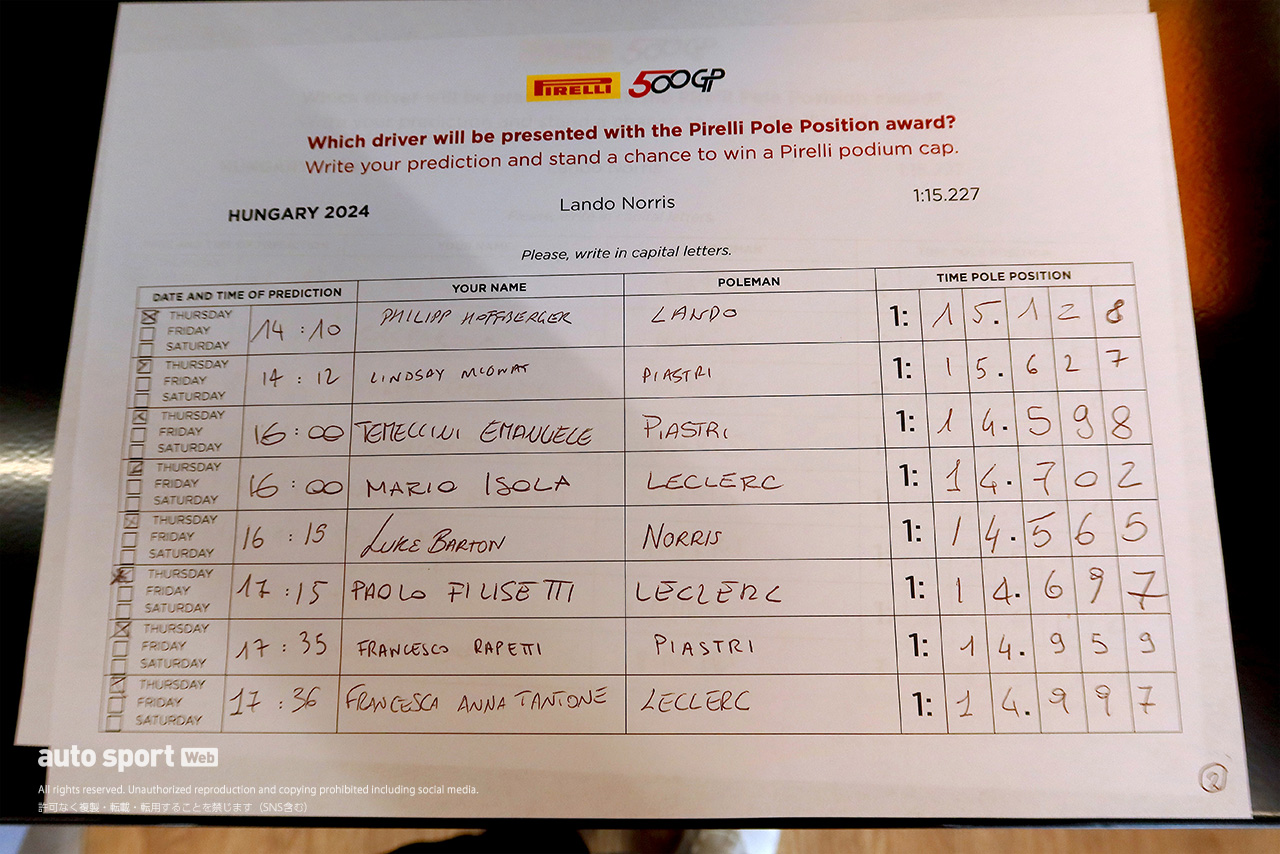 PIRELLI 500GP
Which driver will be presented with the Pirelli Pole Position award?
Write your prediction and stand a chance to win a Pirelli podium cap.
HUNGARY 2024 Lando Norris 1:15.227
Please, write in capital letters.
DATE AND TIME OF PREDICTION YOUR NAME POLEMAN TIME POLE POSITION
THURSDAY
FRIDAY 14:10 PHILIPP HOFFBERGER LANDO 1: 15.128
SATURDAY
THURSDAY
FRIDAY 14:12 LINDSAY PIASTRI 1: 15.627
SATURDAY
THURSDAY
FRIDAY 16:00 TEMELLINI EMANUELE PIASTRI 1: 14.598
SATURDAY
THURSDAY
FRIDAY 16:00 MARIO ISOLA LECLERC 1: 14.702
SATURDAY
THURSDAY
FRIDAY 16:15 LUKE BARTON NORRIS 1: 14.565
SATURDAY
THURSDAY
FRIDAY 17:15 PAOLO FILISETTI LECLERC 1: 14.697
SATURDAY
THURSDAY
FRIDAY 17:35 FRANCESCO RAPETTI PIASTRI 1: 14.959
SATURDAY
THURSDAY
FRIDAY 17:36 FRANCESCA ANNA TANTONE LECLERC 1: 14.997
SATURDAY
2
auto sport Web
All rights reserved. Unauthorized reproduction and copying prohibited including social media.
許可なく複製・転載・転用することを禁じます（SNS含む）